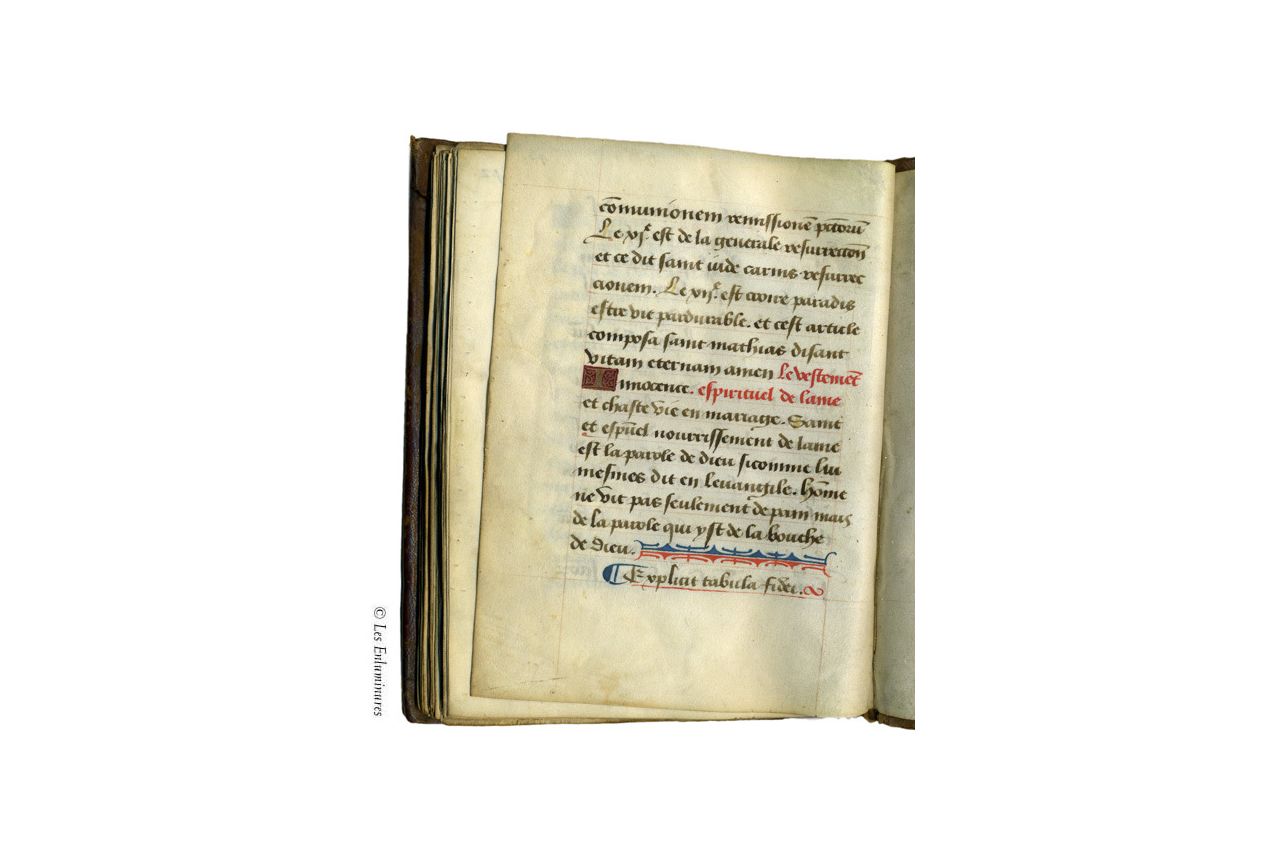 cōmunionem remissionē pctorū
Le xiᵉ. est de la generale resurrectiō
et ce dit saint iude carnis resurrec
cionem. Le xiiᵉ. est croire paradis
estre vie pardurable. et cest article
composa saint mathias disant
vitam eternam amen le vestemēt
Innocence. espirituel de lame
et chaste vie en mariage. Saint
et espūel nourrissement de lame
est la parole de dieu sicomme lui
mesmes dit en leuangile. hōme
ne vit pas seulement de pain mais
de la parole qui yst de la bouche
de dieu.
Explicit tabula fidei.
© Les Enluminures